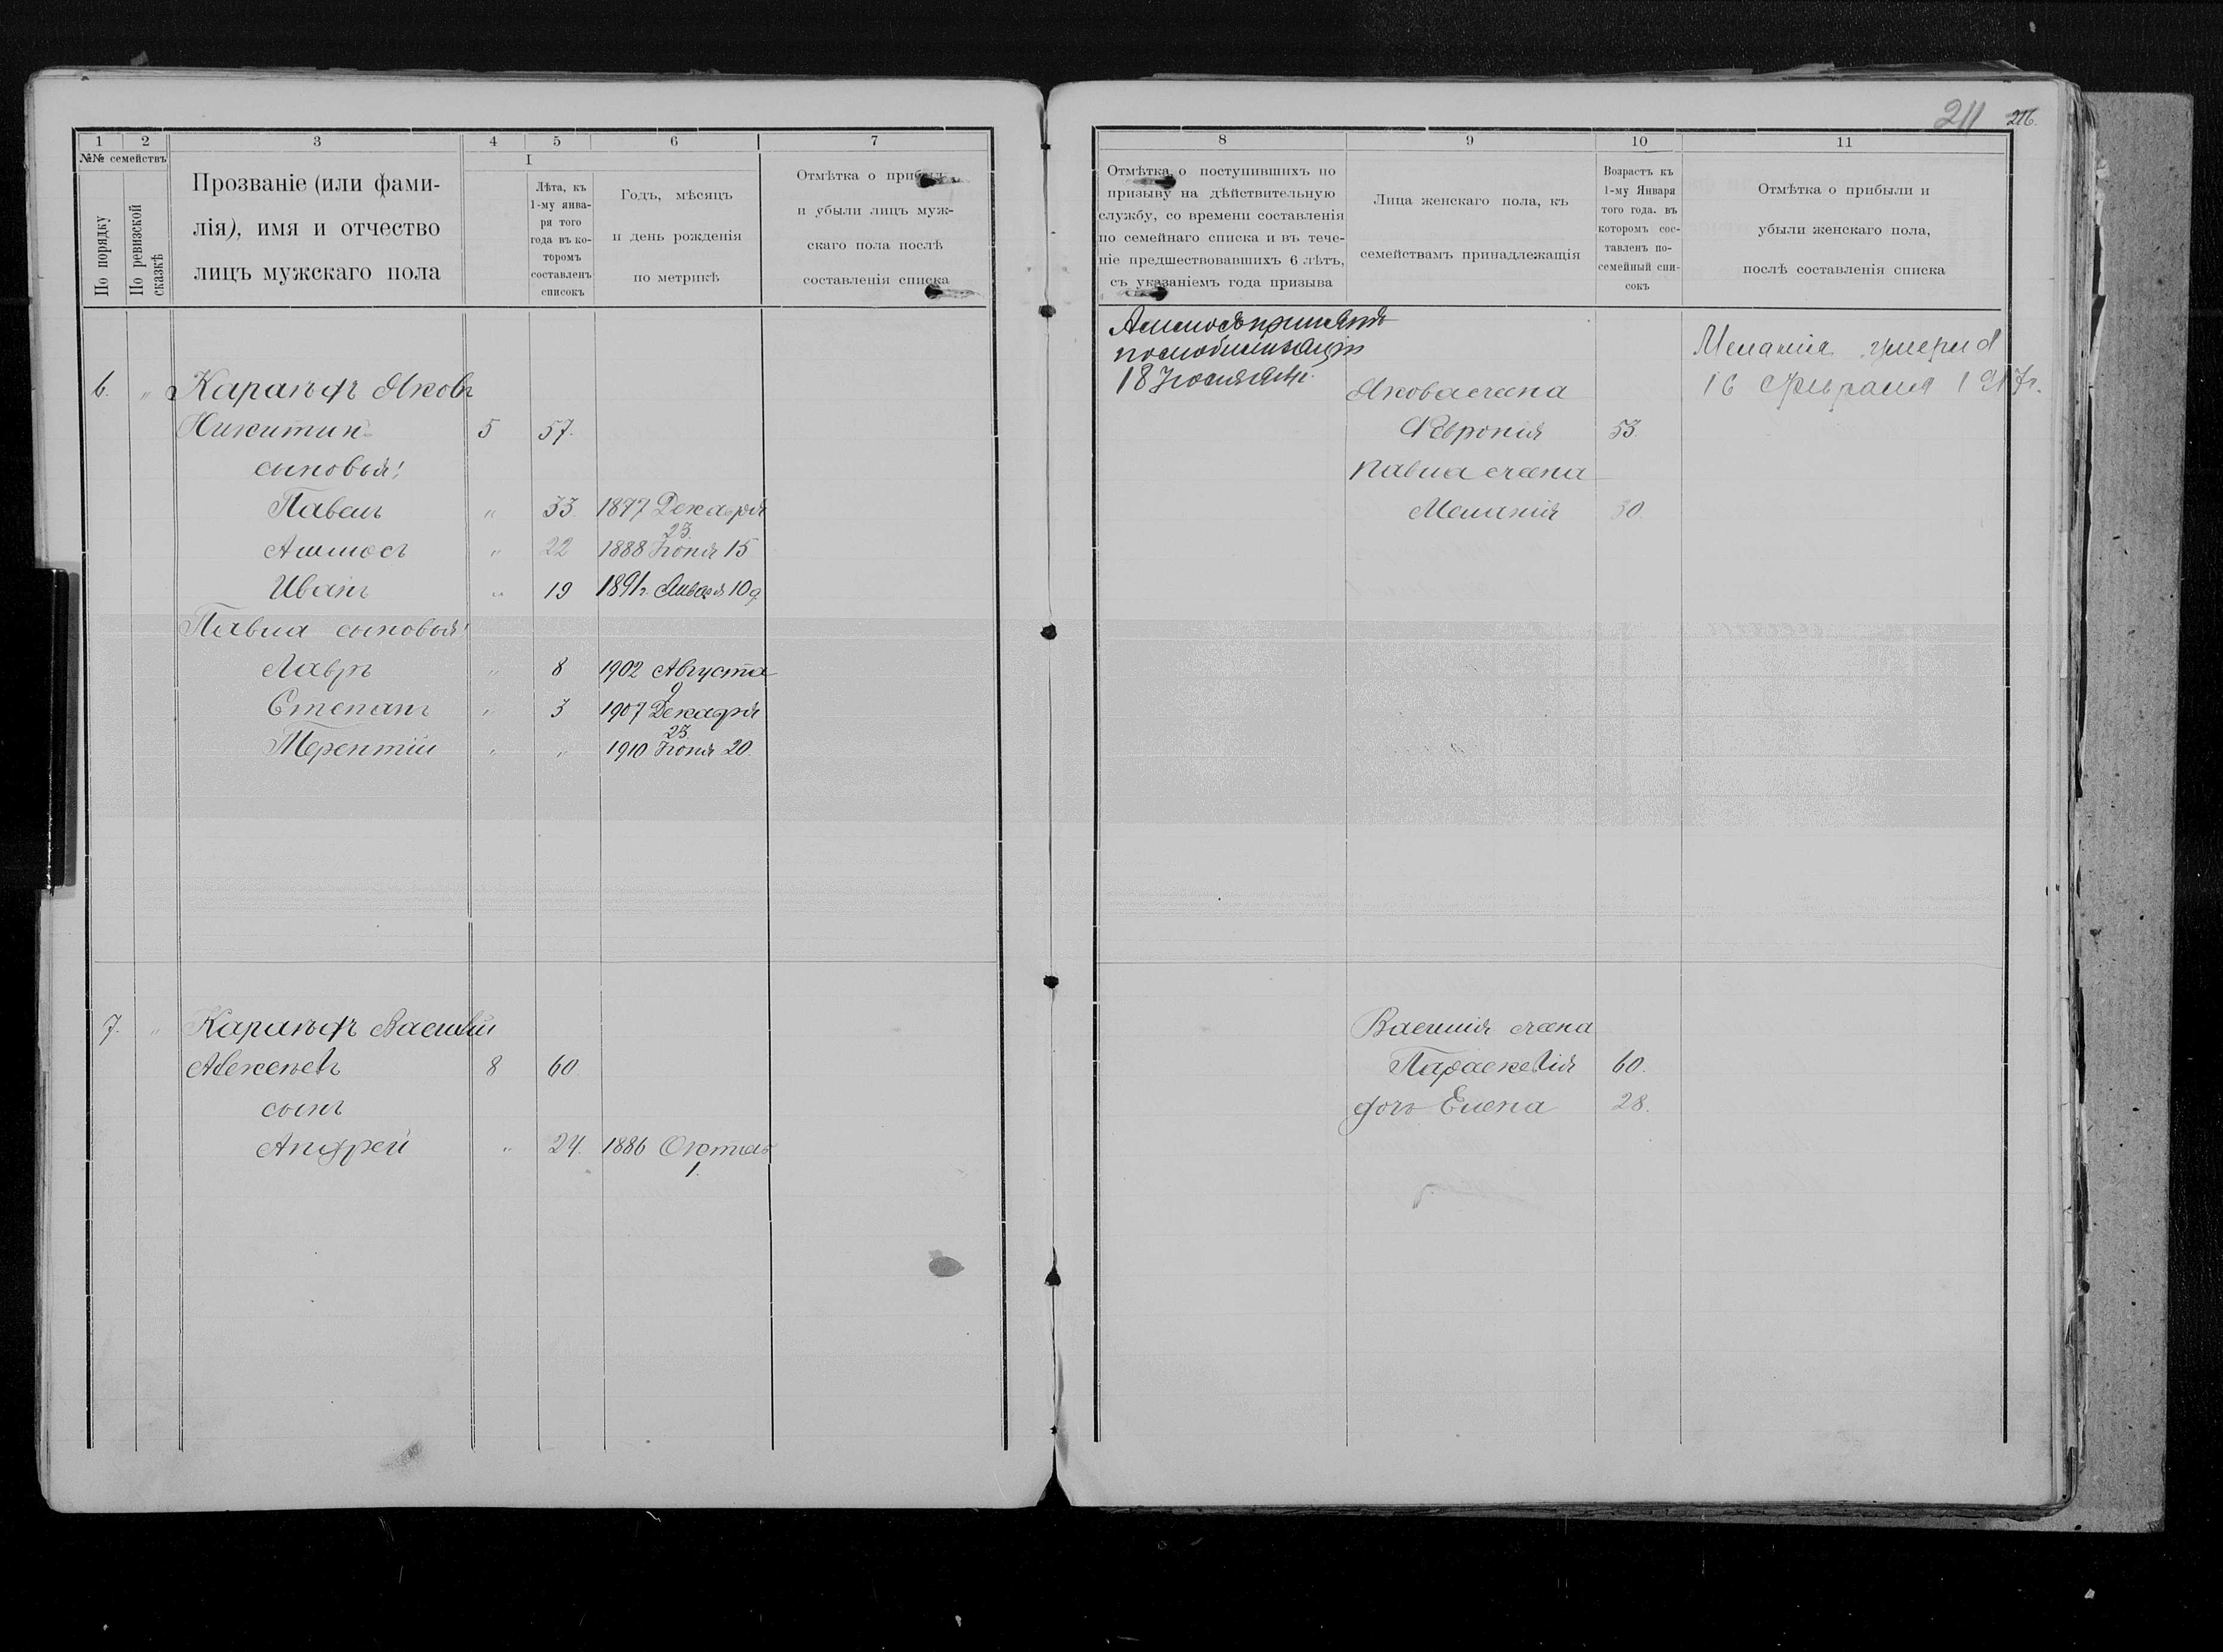 211 216.
1 2 3 4 5 6 7
№№ семействъ
По порядку
По ревизской сказкѣ
Прозваніе (или фами-
лія), имя и отчество
лицъ мужскаго пола
I
Лѣта, къ
1-му янва-
ря того
года въ ко-
торомъ
составленъ
списокъ
Годъ, мѣсяцъ
и день рожденія
по метрикѣ
Отмѣтка о
и убыли лицъ муж-
скаго пола послѣ
составленія списка
6. " Яковъ
Никитин 5 57.
сыновья:
Павелъ " 33 1877 Декабря
23.
Аммосъ " 22 1888 Іюня 15
Иванъ " 19 1891г. Января 10
Павла сыновья:
Лавръ " 8 1902 Августа
9
Степанъ " 3 1907 Декабря
23.
Терентій " " 1910 Іюня 20.
7. " Василій
Алексѣевъ 8 60
сынъ
Андрей " 24. 1886
1.
8 9 10 11
Отмѣтка о поступившихъ по
призыву на дѣйствительную
службу, со времени составленія
по семейнаго списка и въ тече-
ніе предшествовавшихъ 6 лѣтъ,
съ указаніемъ года призыва
Лица женскаго пола, къ
семействамъ принадлежащія
Возрастъ къ
1-му Января
того года. въ
которомъ сос-
тавленъ по-
семейный спи-
сокъ
Отмѣтка о прибыли и
убыли женскаго пола,
послѣ составленія списка
Аммосъ принятъ
по мобилизаціи
18 Іюля 1914г.
Меланія умерла
16 Февраля 1917г.
Якова жена
Февронія 53.
Павла жена
Меланія 30.
Василія жена
Параскевія 60.
дочь Елена 28.